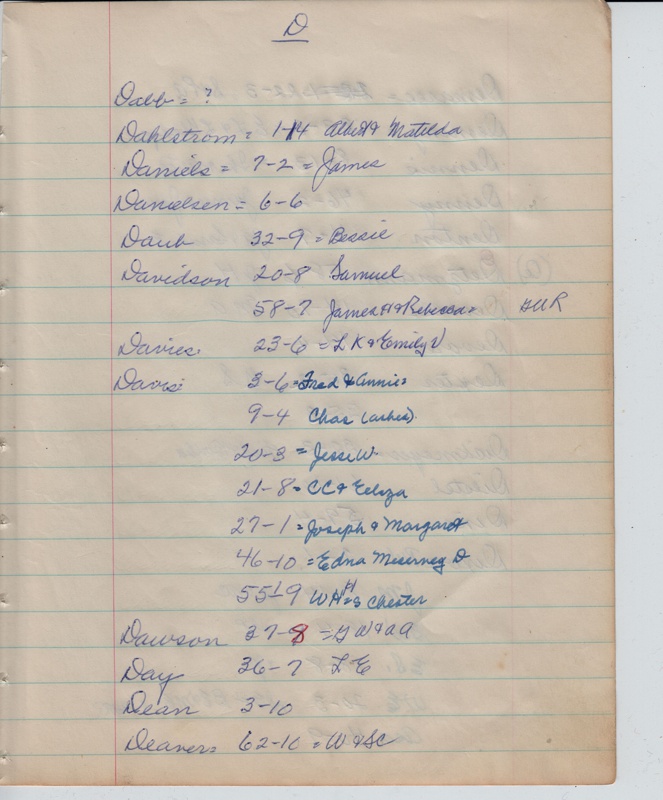 D
Dabb = ?
Dahlstrom = 1-14 Albert & Matilda
Daniels = 7-2 = James
Danielsen = 6-6
Daub 32-9 = Bessie
Davidson 20-8 Samuel
58-7 James H & Rebecca =
Davies. 23-6 = L K & Emily V
Davis 3-6 = Fred & Annie =
9-4 Chas (ashes)
20-3 = Jesse W.
21-8 = CC & Eliza
27-1 = Joseph & Margaret
46-10 = Edna Meserney D
55-9 W H Chester
Dawson 37-8 = G W & A A
Day 36-7 L E
Dean 3-10
Deaver = 62-10 = W & SC